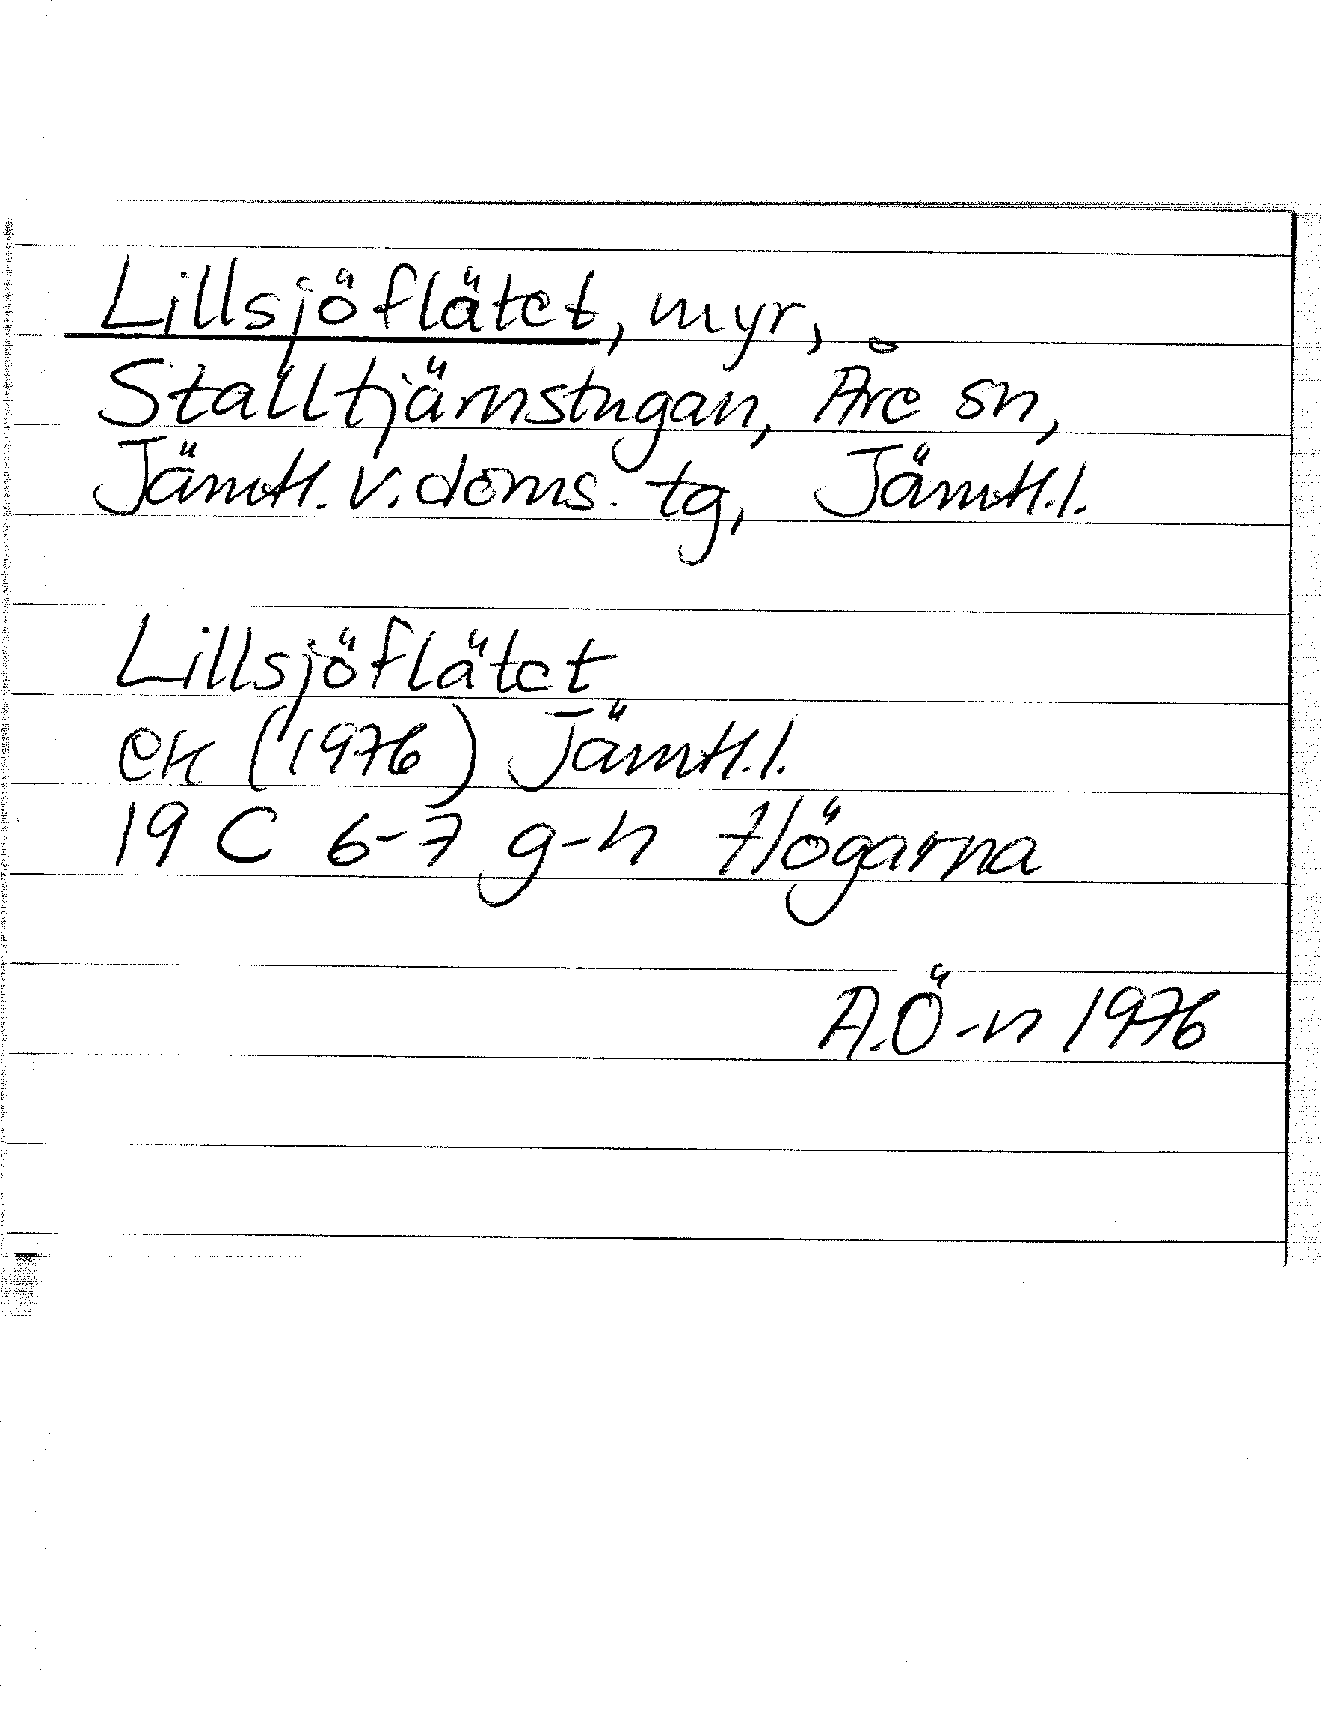 Lillsjöflätet, myr,
Stalltjärnstugan, Åre sn,
Jämtl. v. doms. tg, Jämtl. l.
Lillsjöflätet
ek (1976) Jämtl. l.
19 C 6-7 g-h Högarna
A.Ö-n 1976